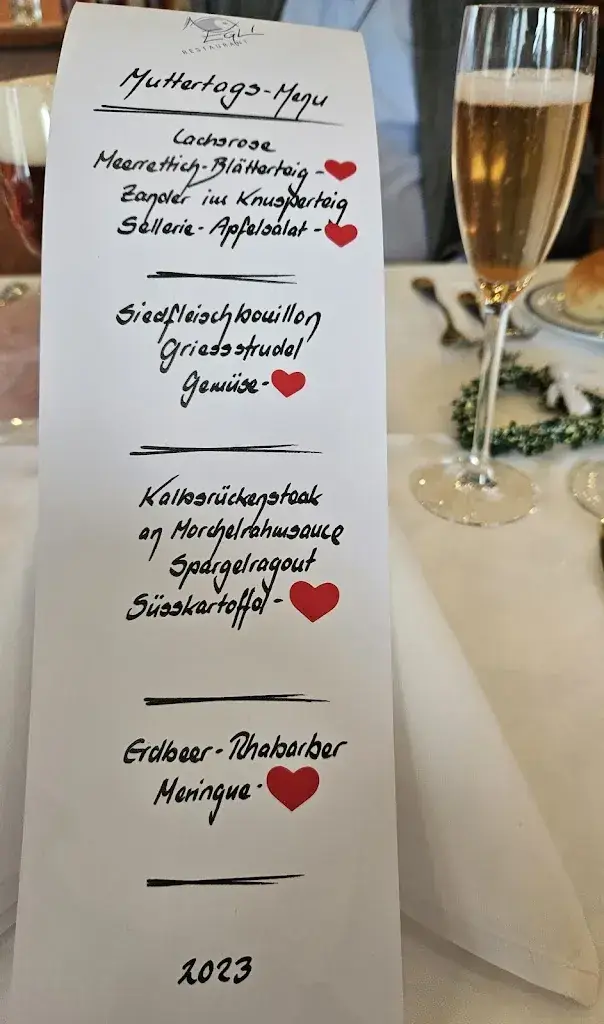 EGLI
RESTAURANT
Muttertags-Menu
Lachsrose
Meerrettich-Blätterteig-
Zander im Knusperteig
Sellerie-Apfelsalat-
Siedfleischbouillon
Griessstrudel
Gemüse-
Kalbsrückensteak
an Morchelrahmsauce
Spargelragout
Süsskartoffel-
Erdbeer-Rhabarber
Meringue-
2023